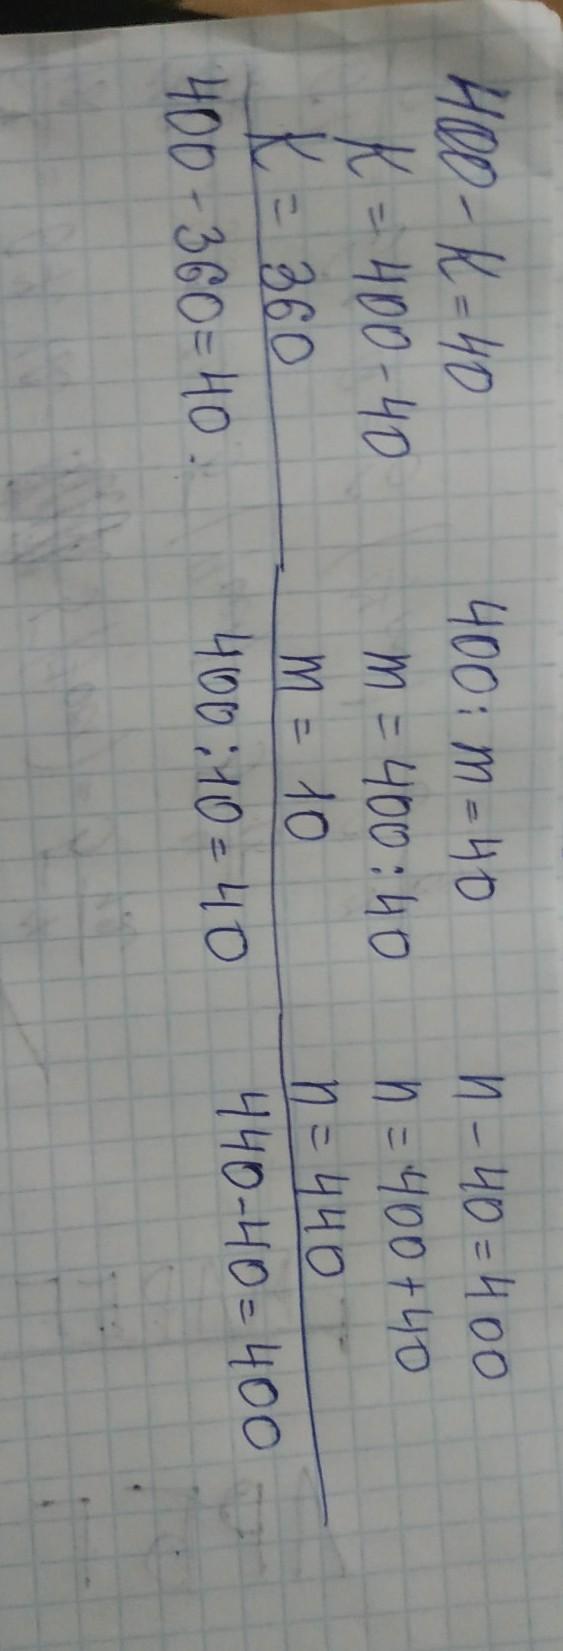 400 - K = 40
K = 400 - 40
K = 360
400 - 360 = 40
400 : m = 40
m = 400 : 40
m = 10
400 : 10 = 40
n - 40 = 400
n = 400 + 40
n = 440
440 - 40 = 400